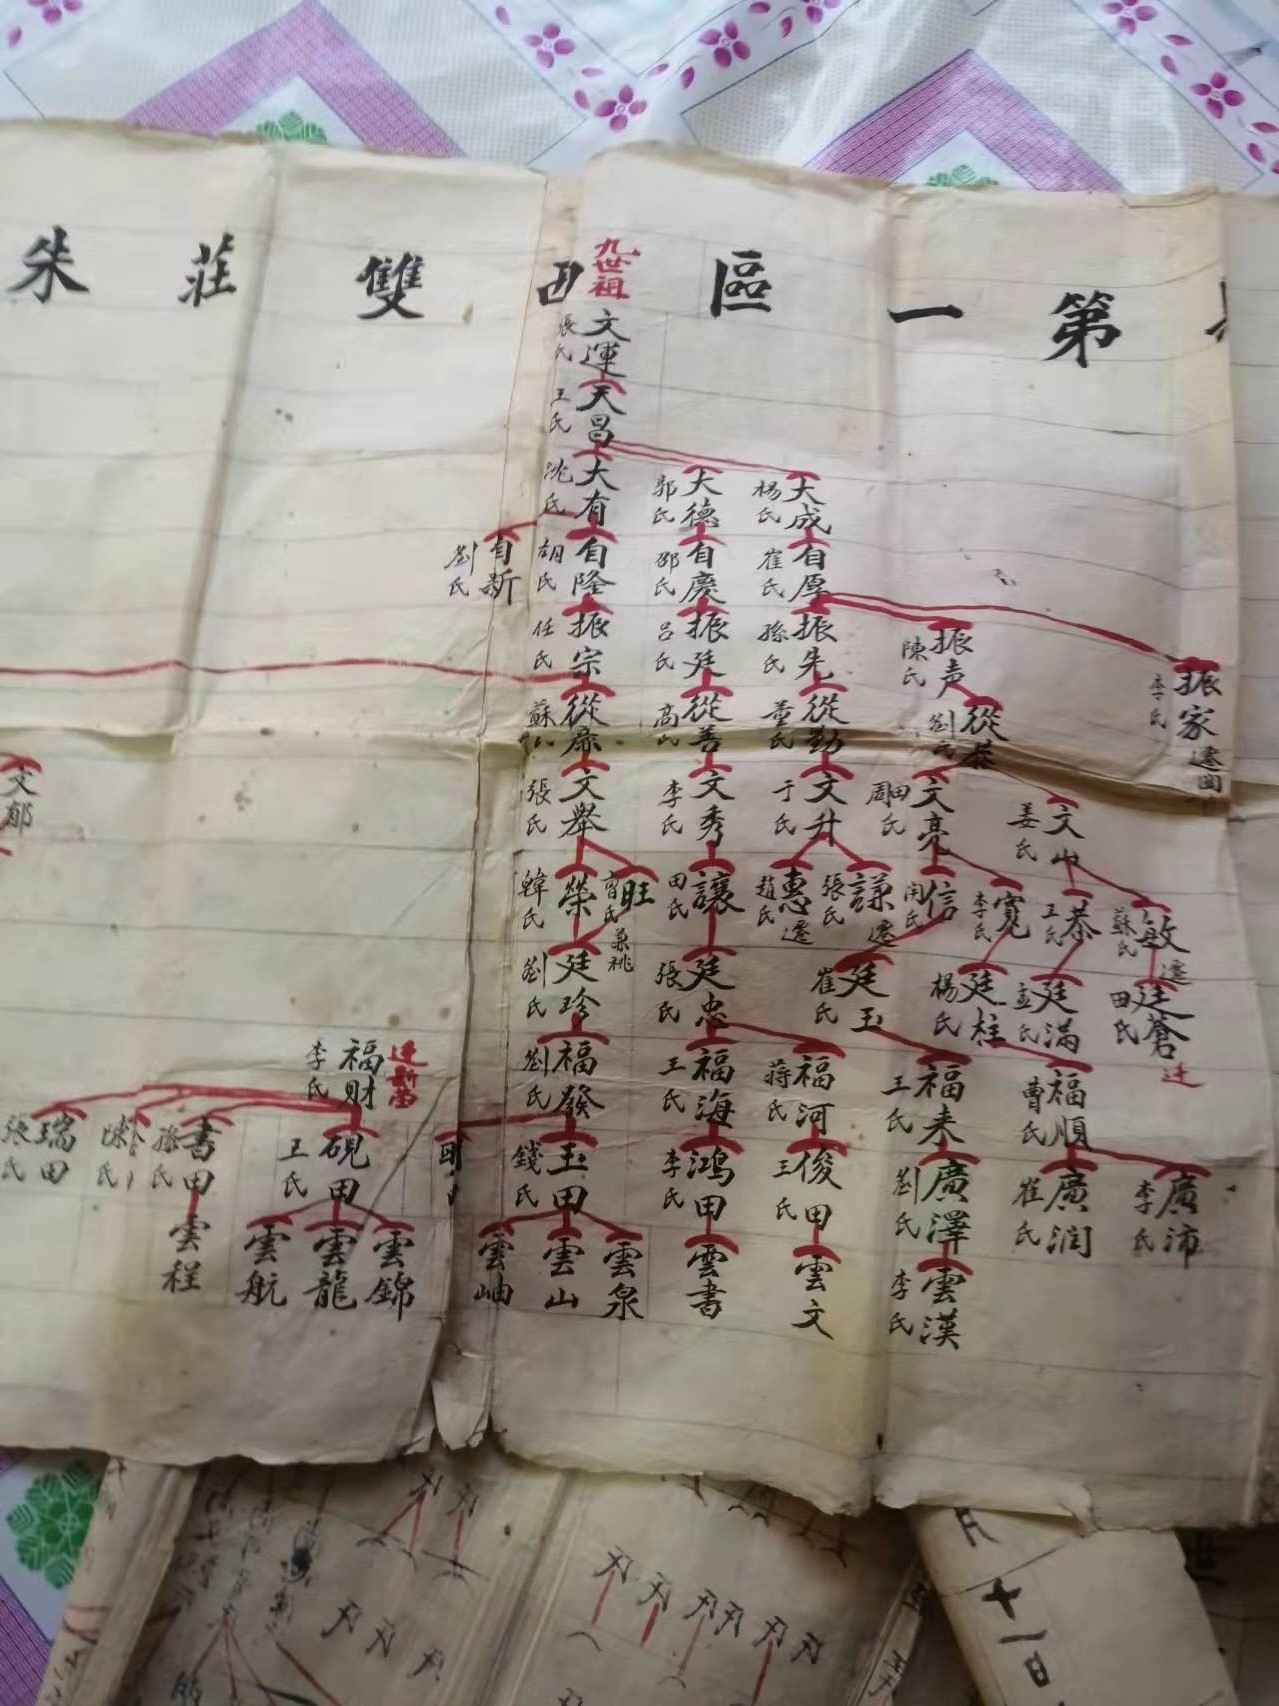 第一區西雙莊朱
九世祖
文運
張氏
天昌
王氏
大成
楊氏
大德
郭氏
大有
沈氏
自厚
崔氏
自慶
邵氏
自隆
胡氏
自新
劉氏
振家
李氏
遷
振声
陳氏
振先
孫氏
振廷
呂氏
振宗
任氏
從恭
劉氏
從勤
董氏
從善
高氏
從
蘇氏
文山
姜氏
文亮
田氏
周氏
文升
于氏
文秀
李氏
文舉
張氏
文郁
敏
蘇氏
遷
恭
王氏
寬
李氏
信
閆氏
謙
張氏
遷
惠
趙氏
遷
讓
田氏
旺
氏
兼祧
榮
韓氏
廷蒼
田氏
迁
廷滿
孟氏
廷柱
楊氏
廷玉
崔氏
廷忠
張氏
廷珍
劉氏
福順
曹氏
福来
王氏
福河
蔣氏
福海
王氏
福發
劉氏
福財
李氏
廣沛
李氏
廣潤
崔氏
廣澤
劉氏
俊田
王氏
鴻田
李氏
玉田
錢氏
硯田
王氏
書田
孫氏
陳氏
瑞田
張氏
雲漢
李氏
雲文
雲書
雲泉
雲山
雲岫
雲錦
雲龍
雲航
雲程
月十八日